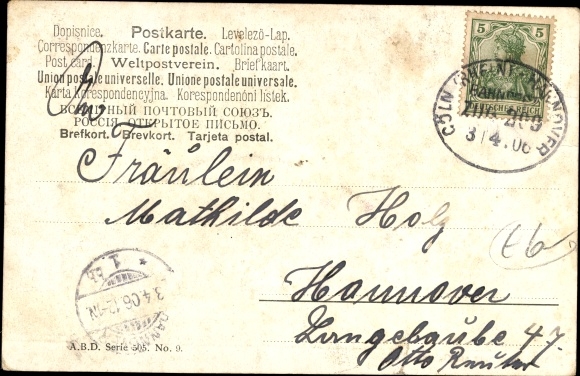 Dopisnice. Postkarte. Levelező-Lap.
Correspondenzkarte. Carte postale. Cartolina postale.
Post card. Weltpostverein. Briefkaart.
Union postale universelle. Unione postale universale.
Karta korespondencyjna. Korespondenóni listek.
ВСЕМIРНЫЙ ПОЧТОВЫЙ СОЮЗЪ.
РОССIЯ. ОТКРЫТОЕ ПИСЬМО.
Brefkort. Brevkort. Tarjeta postal.
5 5
DEUTSCHES REICH
CÖLN (RHEIN) HANNOVER
BAHNPOST
ZUG 209
3/4.06
Fräulein
Mathilde Holz
Hannover
Langelaube 47.
Otto Reuter
3.4.06.12-1N.
A.B.D. Serie 505. No. 9.